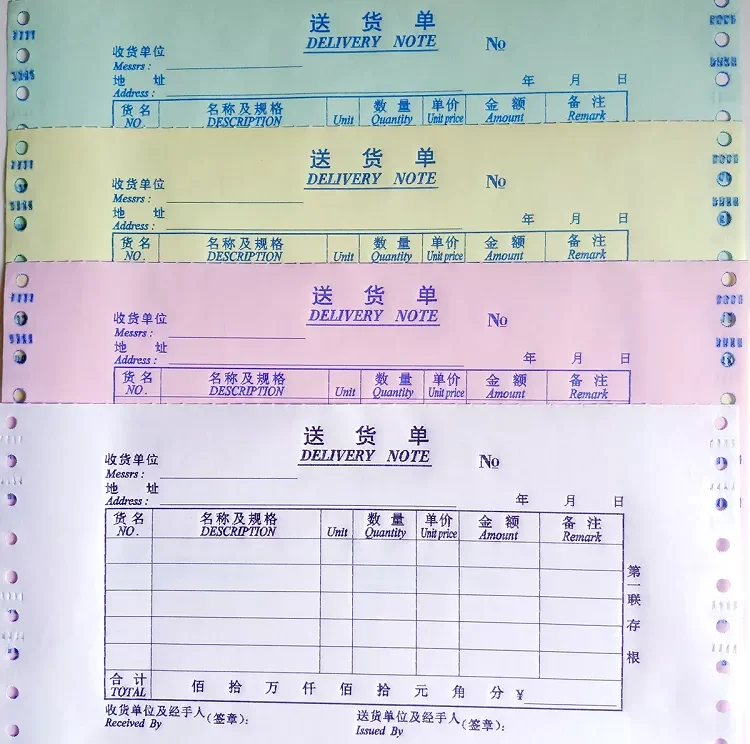 送 货 单
DELIVERY NOTE
No
收货单位
Messrs :
地 址
年 月 日
Address :
货 名 名称及规格 数 量 单价 金 额 备 注
NO. DESCRIPTION Unit Quantity Unit price Amount Remark
送 货 单
DELIVERY NOTE
No
收货单位
Messrs :
地 址
年 月 日
Address :
货 名 名称及规格 数 量 单价 金 额 备 注
NO. DESCRIPTION Unit Quantity Unit price Amount Remark
送 货 单
DELIVERY NOTE
No
收货单位
Messrs :
地 址
年 月 日
Address :
货 名 名称及规格 数 量 单价 金 额 备 注
NO. DESCRIPTION Unit Quantity Unit price Amount Remark
送 货 单
DELIVERY NOTE
No
收货单位
Messrs :
地 址
年 月 日
Address :
货 名 名称及规格 数 量 单价 金 额 备 注
NO. DESCRIPTION Unit Quantity Unit price Amount Remark
第一联存根
合 计
TOTAL
佰 拾 万 仟 佰 拾 元 角 分 ¥
收货单位及经手人(签章):
Received By
送货单位及经手人(签章):
Issued By